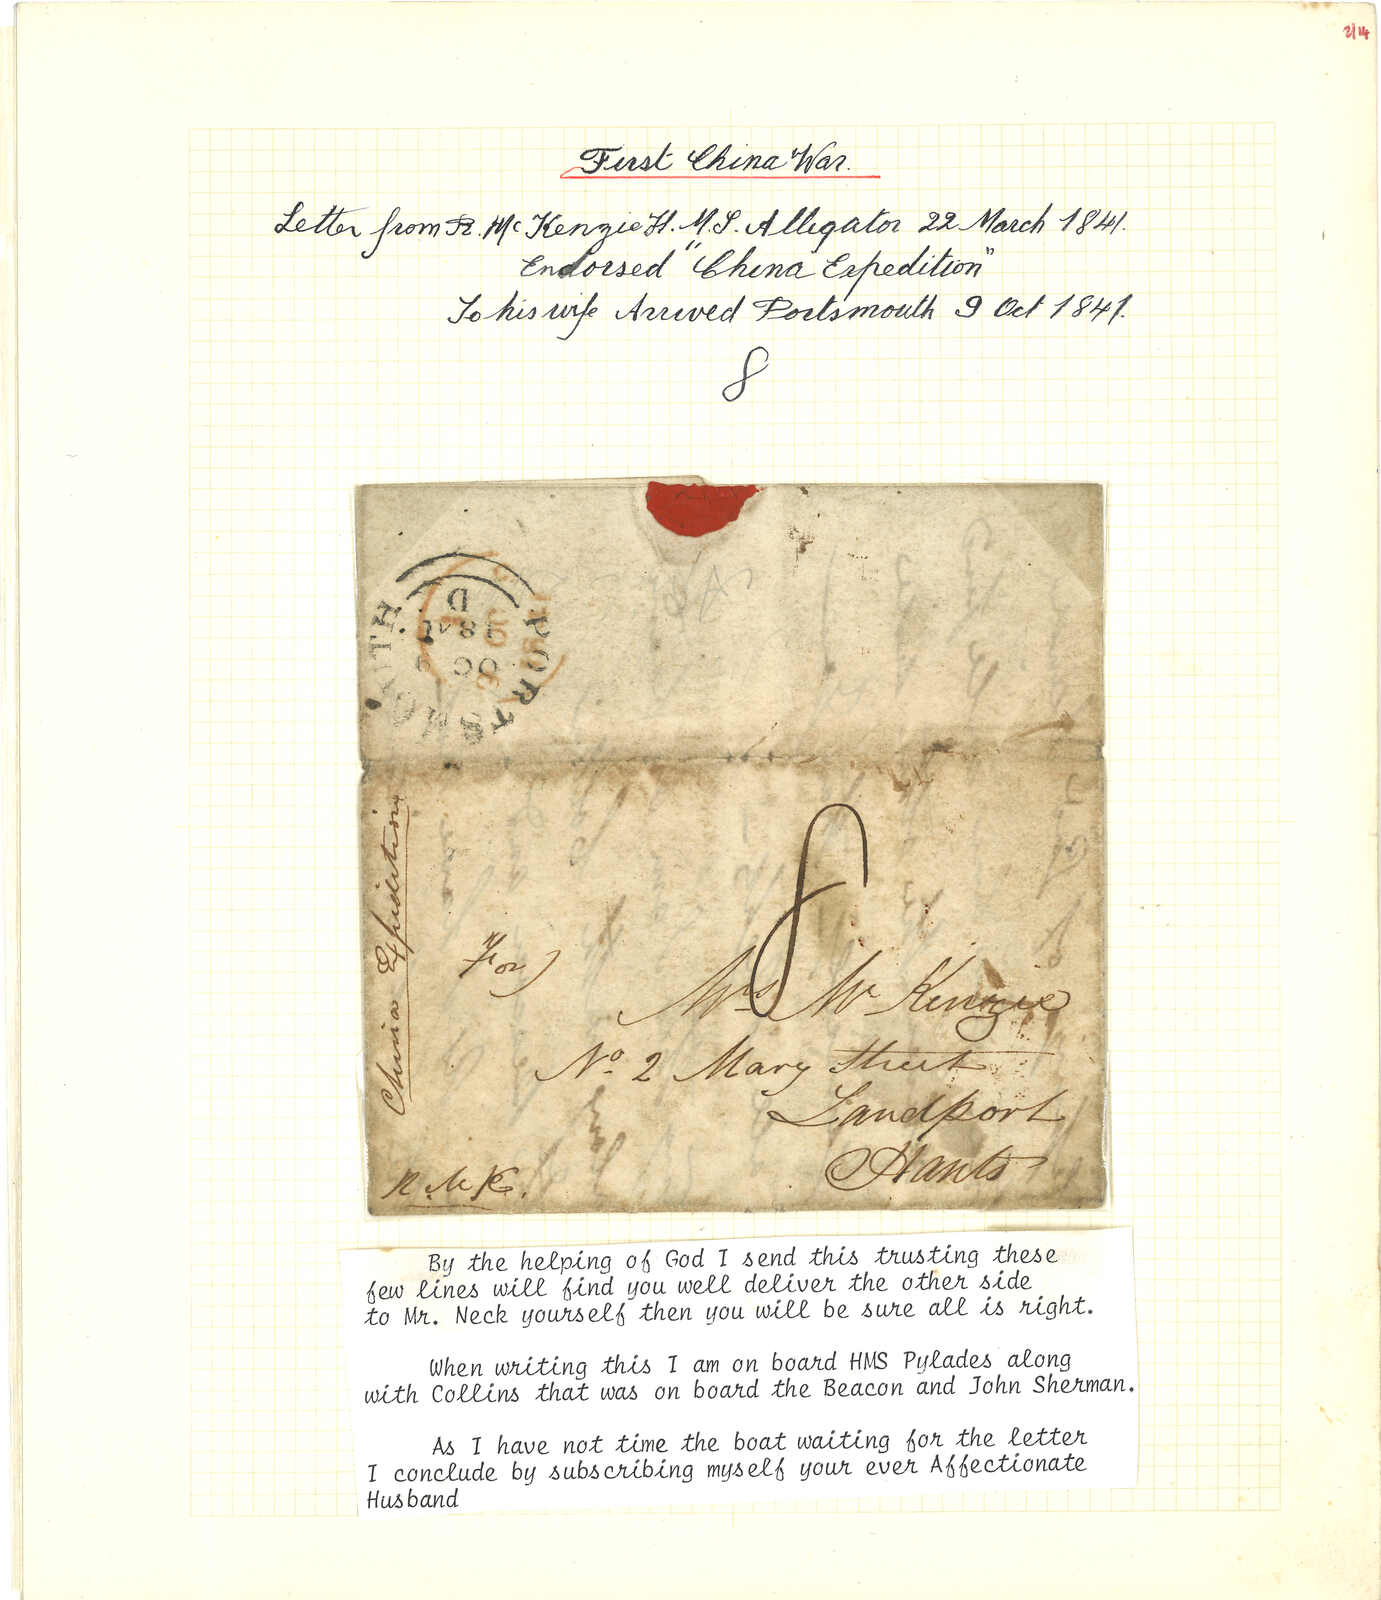 2/14
First China War.
Letter from R. Mc Kenzie H.M.S. Alligator 22 March 1841.
Endorsed "China Expedition"
To his wife Arrived Portsmouth 9 Oct 1841.
8
PORTSMOUTH
D
1841
OC 9
China Expedition
8
For
Mrs Mc Kenzie
No. 2 Mary Street
Landport
Hants
R. McK.
By the helping of God I send this trusting these
few lines will find you well deliver the other side
to Mr. Neck yourself then you will be sure all is right.
When writing this I am on board HMS Pylades along
with Collins that was on board the Beacon and John Sherman.
As I have not time the boat waiting for the letter
I conclude by subscribing myself your ever Affectionate
Husband